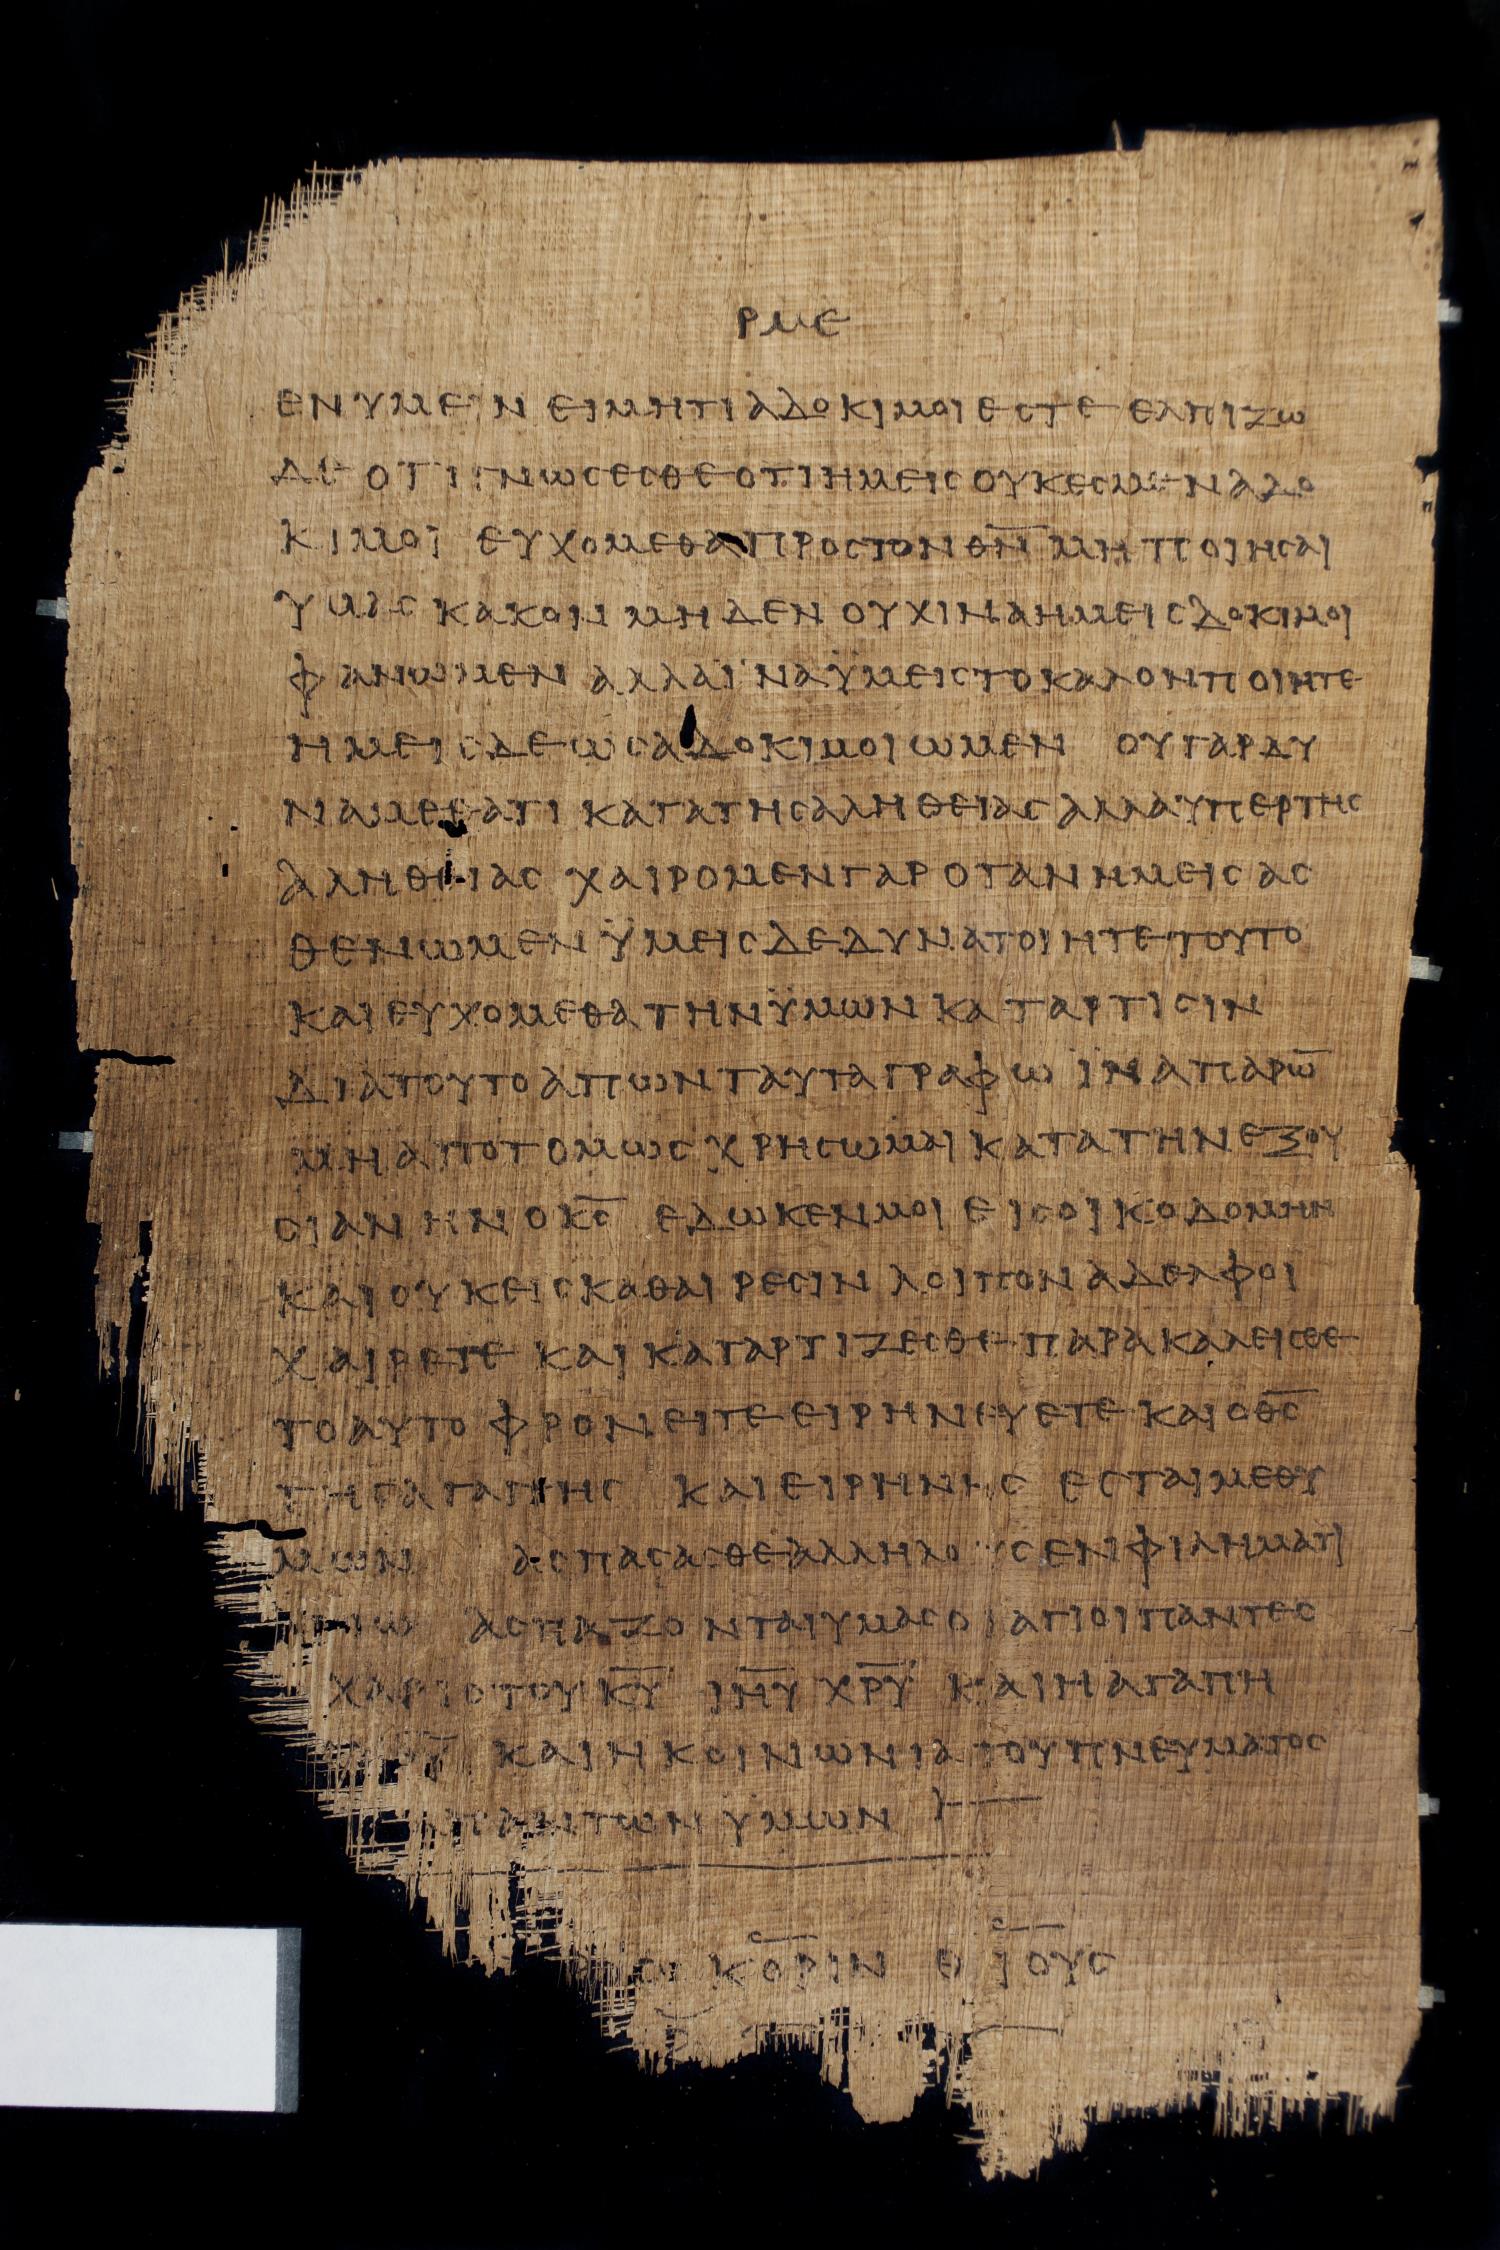 ΡΜΕ
ΕΝ ΥΜΕΙΝ ΕΙΜΗΤΙ ΑΔΟΚΙΜΟΙ ΕΣΤΕ ΕΛΠΙΖΩ
ΔΕ ΟΤΙ ΓΝΩΣΕΣΘΕ ΟΤΙ ΗΜΕΙΣ ΟΥΚ ΕΣΜΕΝ ΑΔΟ
ΚΙΜΟΙ ΕΥΧΟΜΕΘΑ ΠΡΟΣ ΤΟΝ Θ̅Ν̅ ΜΗ ΠΟΙΗΣΑΙ
ΥΜΑΣ ΚΑΚΟΝ ΜΗΔΕΝ ΟΥΧ ΙΝΑ ΗΜΕΙΣ ΔΟΚΙΜΟΙ
ΦΑΝΩΜΕΝ ΑΛΛΑ ΪΝΑ ΫΜΕΙΣ ΤΟ ΚΑΛΟΝ ΠΟΙΗΤΕ
ΗΜΕΙΣ ΔΕ ΩΣ ΑΔΟΚΙΜΟΙ ΩΜΕΝ ΟΥ ΓΑΡ ΔΥ
ΝΑΜΕΘΑ ΤΙ ΚΑΤΑ ΤΗΣ ΑΛΗΘΕΙΑΣ ΑΛΛΑ ΥΠΕΡ ΤΗΣ
ΑΛΗΘΕΙΑΣ ΧΑΙΡΟΜΕΝ ΓΑΡ ΟΤΑΝ ΗΜΕΙΣ ΑΣ
ΘΕΝΩΜΕΝ ΫΜΕΙΣ ΔΕ ΔΥΝΑΤΟΙ ΗΤΕ ΤΟΥΤΟ
ΚΑΙ ΕΥΧΟΜΕΘΑ ΤΗΝ ΫΜΩΝ ΚΑΤΑΡΤΙΣΙΝ
ΔΙΑ ΤΟΥΤΟ ΑΠΩΝ ΤΑΥΤΑ ΓΡΑΦΩ ΪΝΑ ΠΑΡΩ̅
ΜΗ ΑΠΟΤΟΜΩΣ ΧΡΗΣΩΜΑΙ ΚΑΤΑ ΤΗΝ ΕΞΟΥ
ΣΙΑΝ ΗΝ Ο Κ̅Σ̅ ΕΔΩΚΕΝ ΜΟΙ ΕΙΣ ΟΙΚΟΔΟΜΗΝ
ΚΑΙ ΟΥΚ ΕΙΣ ΚΑΘΑΙΡΕΣΙΝ ΛΟΙΠΟΝ ΑΔΕΛΦΟΙ
ΧΑΙΡΕΤΕ ΚΑΙ ΚΑΤΑΡΤΙΖΕΣΘΕ ΠΑΡΑΚΑΛΕΙΣΘΕ
ΤΟ ΑΥΤΟ ΦΡΟΝΕΙΤΕ ΕΙΡΗΝΕΥΕΤΕ ΚΑΙ Ο Θ̅Σ̅
ΤΗΣ ΑΓΑΠΗΣ ΚΑΙ ΕΙΡΗΝΗΣ ΕΣΤΑΙ ΜΕΘ Υ
ΜΩΝ ΑΣΠΑΣΑΣΘΕ ΑΛΛΗΛΟΥΣ ΕΝ ΦΙΛΗΜΑΤΙ
ΑΣΠΑΖΟΝΤΑΙ ΥΜΑΣ ΟΙ ΑΓΙΟΙ ΠΑΝΤΕΣ
ΧΑΡΙΣ ΤΟΥ Κ̅Υ̅ Ι̅Η̅Υ̅ Χ̅Ρ̅Υ̅ ΚΑΙ Η ΑΓΑΠΗ
ΚΑΙ Η ΚΟΙΝΩΝΙΑ ΤΟΥ ΠΝΕΥΜΑΤΟΣ
ΠΑΝΤΩΝ ΥΜΩΝ
ΚΟΡΙΝΘΙΟΥΣ